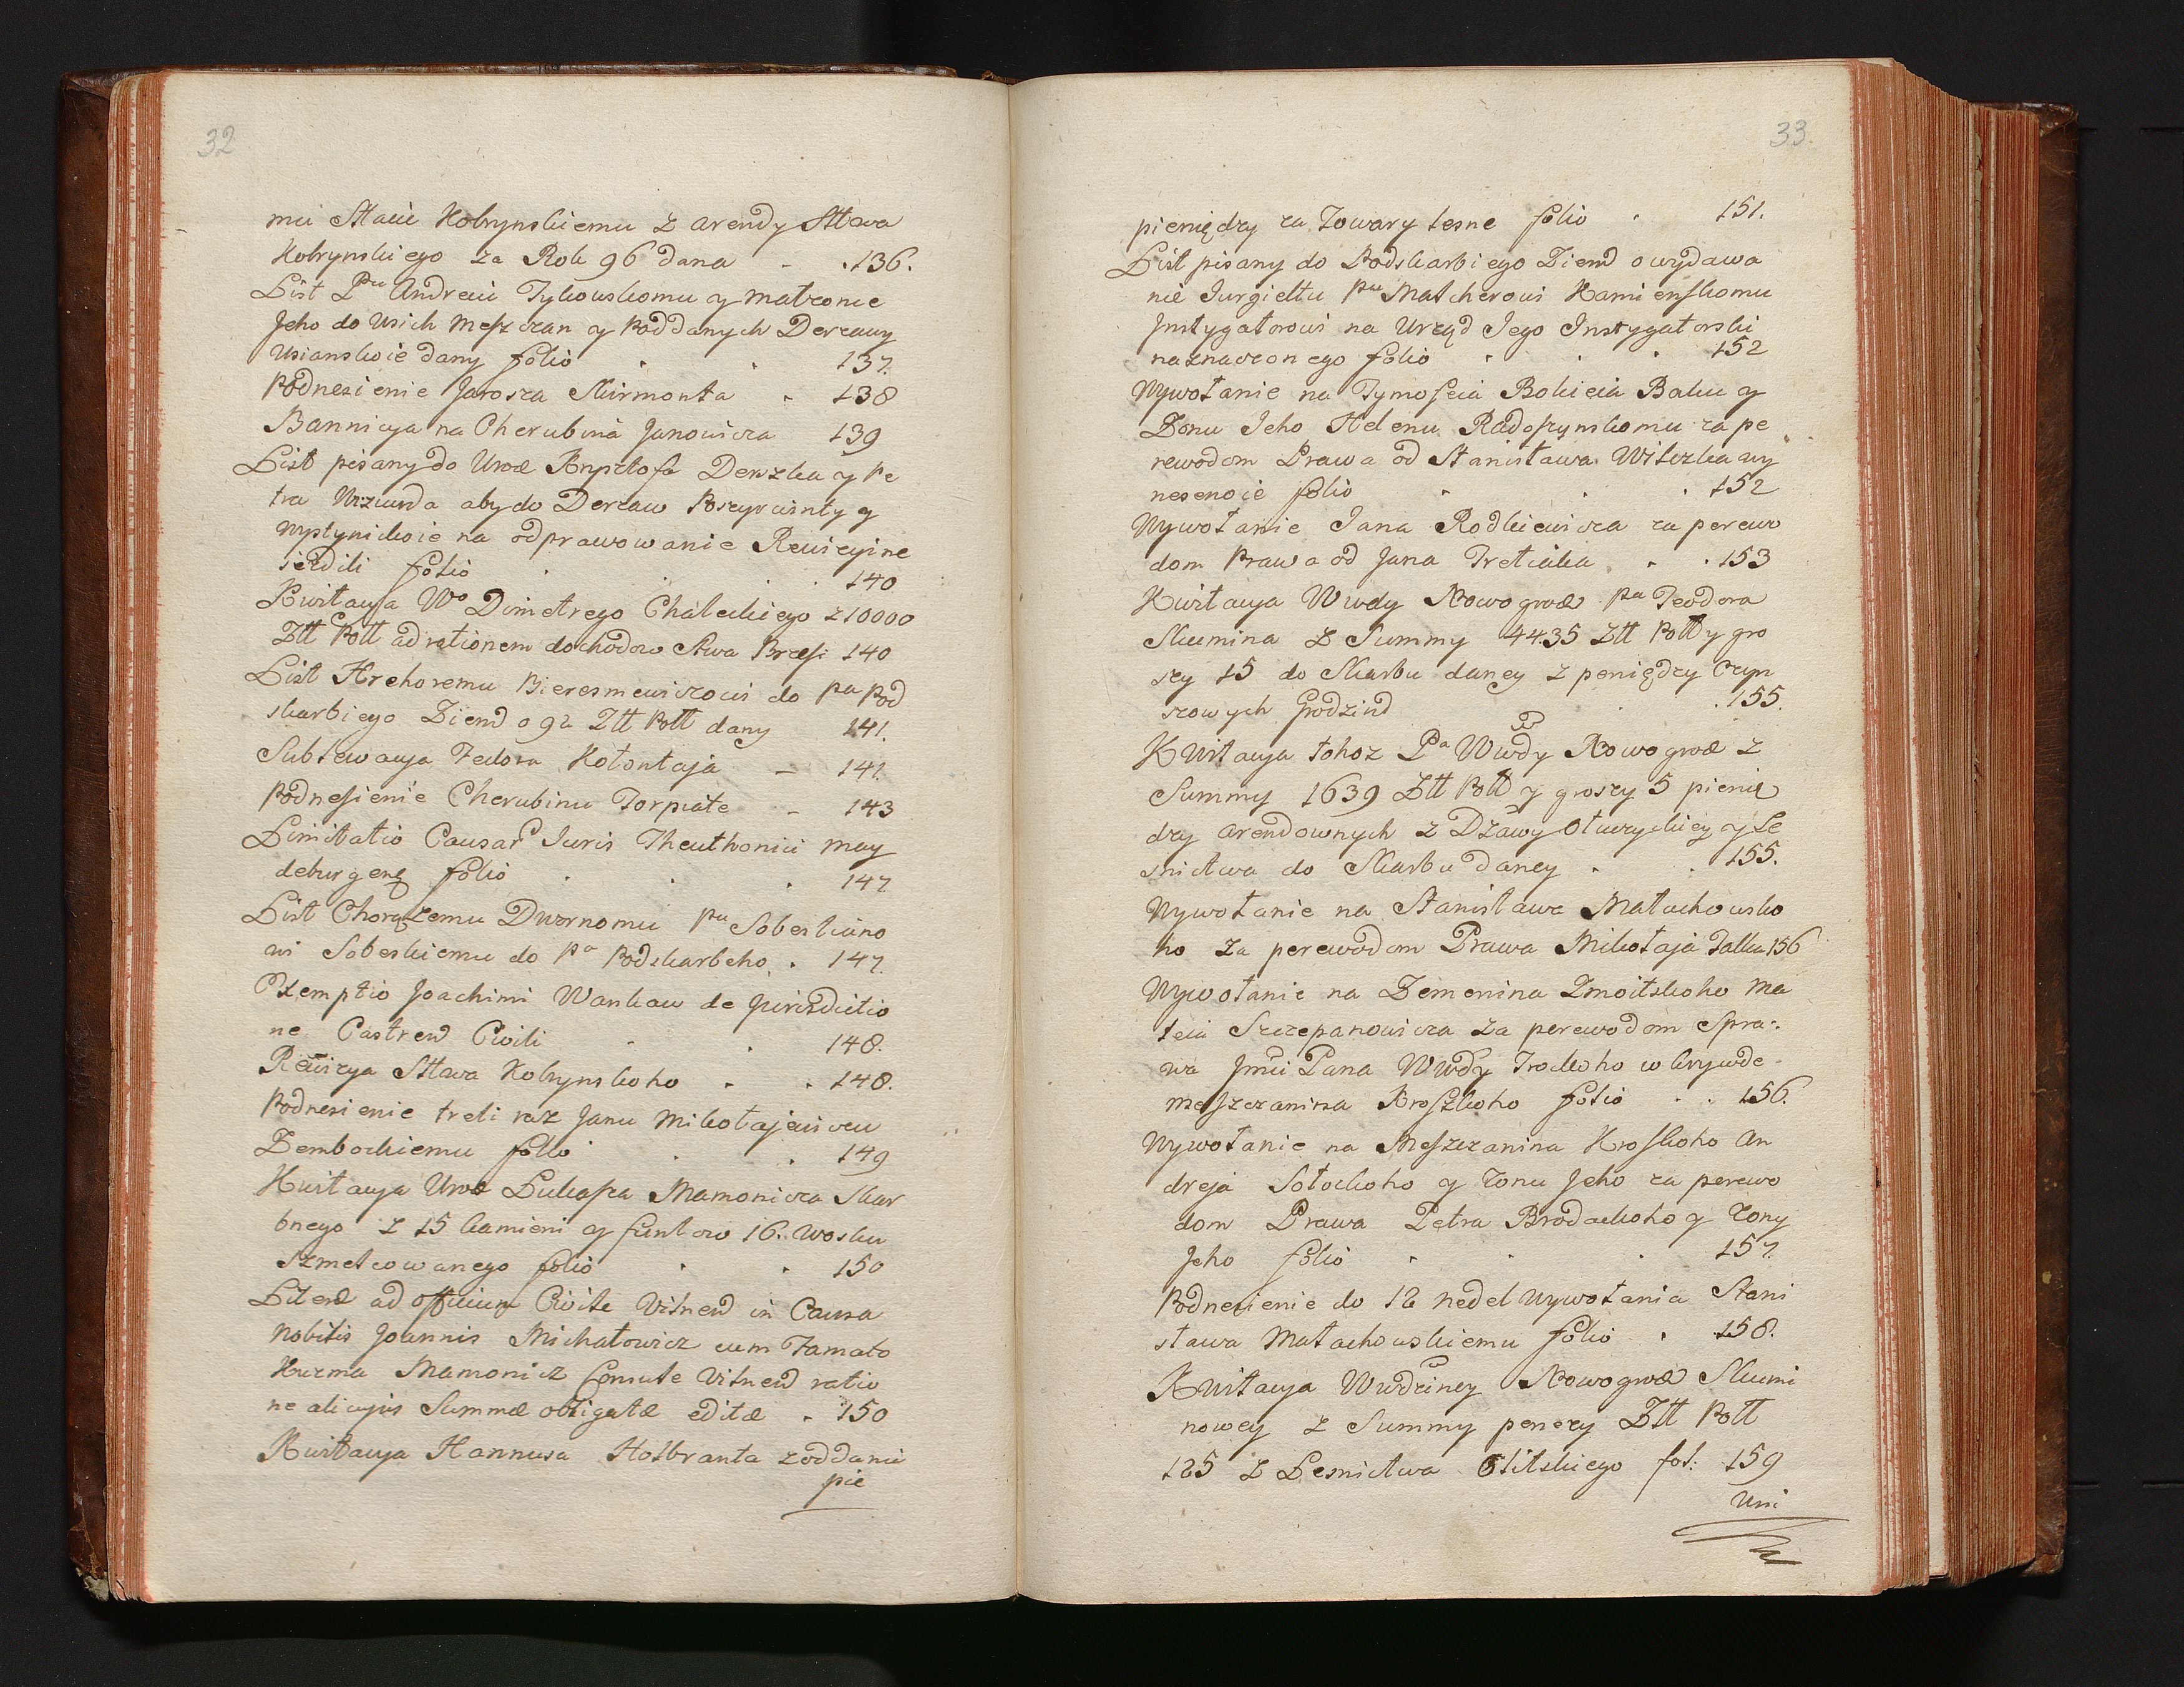 32
mu Stacie Kobrynskiemu z arendy Sttwa
Kobrynskiego za Rok 96 dana - .136.
List Pnu Andreiu Tyhowskomu y małzonce
Jeho do Usich Meszczan y Poddanych Derzawy
Usianskoie dany folio . . 137.
Podnesienie Jarosza Skirmonta . 138
Bannicya na Cherubina Janowicza 139
List pisany do Urod Krysztofa Derszka y Pe
tra aby do Derzaw y
na odprawowanie Rewizyine
folio . . . . 140
Kwitacya Wo Dimetrego Chaleckiego z 10000
Ztt Poll ad rationem dochodow Stwa Brzes: 140
List Hrehoremu Bieresniewiczowi do Pa Pod
skarbiego Ziem o 92 Ztt Poll dany 141.
Sublewacya Fedora Kołontaja - 141.
Podnesienie Cherubinu Torpiate - 143
Limitatio Causar Iuris Theuthonici May
deburgen folio . . . 147
List Chorązemu Dwornomu Pu Sobestiano
wi Sobeskiemu do Pa Podskarbeho . 147.
Exemptio Joachimi Wankaw de Jurisdictio
ne Castren Civili . . 148.
Rewizya Sttwa Kobrynskoho . . 148.
Podnesienie treti raz Janu Mikołajewiczu
Dembockiemu folio . . 149
Kwitacya Urod Łukasza Mamonicza Skar
bnego z 15 kamieni y funtow 16. Wosku
szmelcowanego folio . . 150
Literæ ad officium Civile Vilnen in Causa
Nobilis Joannis Michałowicz cum Famato
Kuzma Mamonicz Consule Vilnen ratio
ne alicujus Summæ obligatæ editæ . 150
Kwitacya Hannusa Holbranta z oddania
pie
33.
pieniędzy za Towary lesne folio . 151.
List pisany do Podskarbiego Ziem o wydawa
nie Iurgieltu Pnu Malcherowi Kamienskomu
Instygatorowi na Urząd Jego Instygatorski
naznaczonego folio . . . 152
Wywołanie na Tymofeia Bokieia Baku y
Żonu Jeho Helenu Radoszynskomu za pe
rewodom Prawa od Stanisława Witczka wy
nesenoie folio . . . 152
Wywołanie Jana Rodkiewicza za perewo
dom Prawa od Jana Tretiaka . . 153
Kwitacya Wwdy Nowogrod Pa Teodora
Skumina z Summy 4435 Ztt Poll y gro
szy 15 do Skarbu daney z peniędzy Czyn
szowych Grodzien . 155.
Kwitacya tohoz Pa Wwdy Nowogrod z
Summy 1639 Ztt Poll y groszy 5 pienię
dzy arendownych z Dzawy y Le
snictwa do Skarbu daney . . 155.
Wywołanie na Stanisława Małachowsko
ho za perewodom Prawa Mikołaja Talka 156
Wywołanie na Zemenina Zmoitskoho Ma
teia Szczepanowicza za perewodom Spra-
wa Jmci Pana Wwdy Trockoho w krywde
meszczanina Kroszkoho folio . . 156.
Wywołanie na Meszczanina Kroskoho An
dreja Sołockoho y żonu Jeho za perewo
dom Prawa Petra Brodackoho y żony
Jeho folio . . . 157.
Podnesienie do 12 nedel wywołania Stani
sława Małachowskiemu folio . 158.
Kwitacya Wwdziney Nowogrod Skumi
nowey z Summy penezy Ztt Poll
125 z Lesnictwa Olitskiego fol: 159
Uni